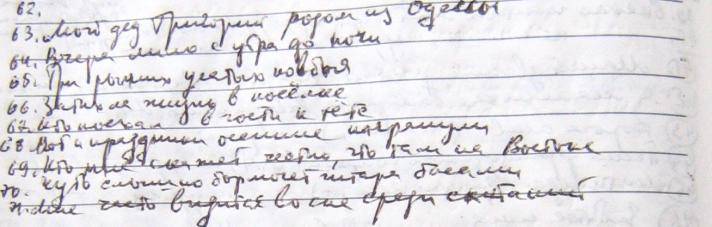 62.
63. Мой дед Григорий родом из Одессы
64. Вчера лило с утра до ночи
65. Три рыжих усатых ковбоя
66. Затихла жизнь в посёлке
67. Кто поехал в гости к тёте
68. Вот и праздники осенние нагрянули
69. Кто мне скажет честно, что там на Востоке
70. Чуть слышно бормочет гитара басами
71. Мне часто видится во сне среди скитаний